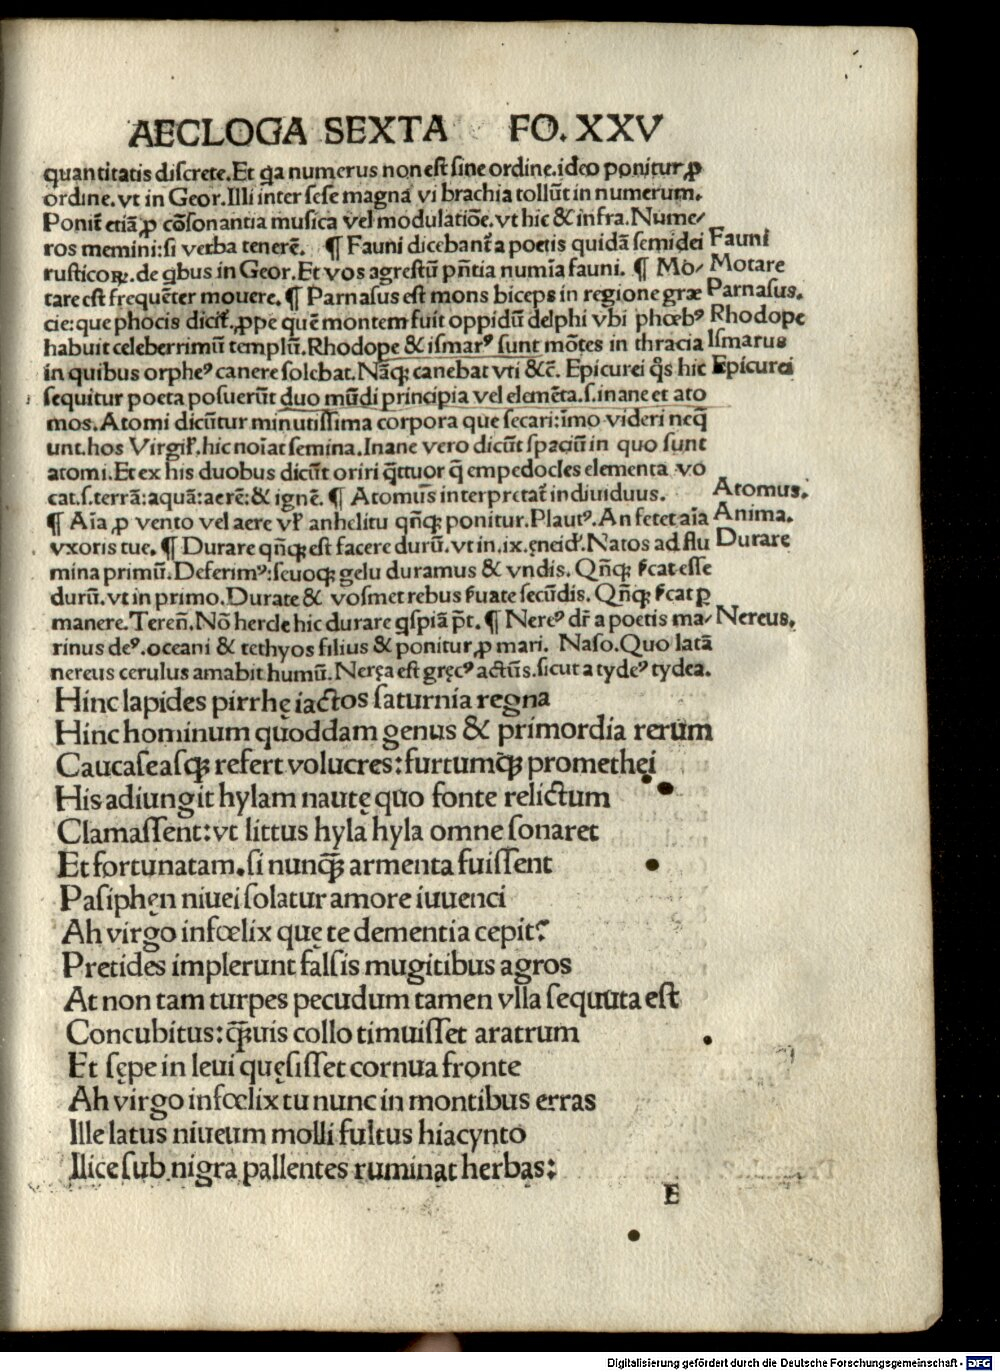 AECLOGA SEXTA FO. XXV
quantitatis discrete. Et qa numerus non est sine ordine. ideo ponitur ꝓ
ordine. vt in Geor. Illi inter sese magna vi brachia tollūt in numerum.
Ponit̄ etiā ꝓ cōsonantia musica vel modulatiōe. vt hic & infra. Nume/
ros memini: si verba tenerē. ¶ Fauni dicebant̄ a poetis quidā semidei Fauni
rusticoꝝ. de qbus in Geor. Et vos agrestū pn̄tia numīa fauni. ¶ Mo/ Motare
tare est frequēter mouere. ¶ Parnasus est mons biceps in regione græ Parnasus.
cie: que phocis dicit̄. ꝓpe quē montem fuit oppidū delphi vbi phœbꝰ Rhodope
habuit celeberrimū templū. Rhodope & ismarꝰ sunt mōtes in thracia Ismarus
in quibus orpheꝰ canere solebat. Nāqꝫ canebat vti &c̄. Epicurei qs hic Epicurei
sequitur poeta posuerūt duo mūdi principia vel elemēta. s. inane et ato
mos. Atomi dicūtur minutissima corpora que secari: īmo videri neq̄
unt. hos Virgil'. hic noīat semina. Inane vero dicūt spaciū in quo sunt
atomi. Et ex his duobus dicūt oriri q̄ttuor q̄ empedocles elementa vo
cat. s. terrā: aquā: aerē: & ignē. ¶ Atomus interpretat̄ indiuiduus. Atomus.
¶ Aīa ꝓ vento vel aere vl' anhelitu qn̄qꝫ ponitur. Plautꝰ. An fetet aīa Anima.
vxoris tue. ¶ Durare qn̄qꝫ est facere durū. vt in. ix. ęneid'. Natos ad flu Durare
mina primū. Deferimꝰ: seuoqꝫ gelu duramus & vndis. Qn̄qꝫ s̄cat esse
durū. vt in primo. Durate & vosmet rebus s̄uate secūdis. Qn̄qꝫ s̄cat ꝑ
manere. Teren̄. Nō hercle hic durare qspiā pt̄. ¶ Nereꝰ dr̄ a poetis ma/ Nereus.
rinus deꝰ. oceani & tethyos filius & ponitur ꝓ mari. Naso. Quo latā
nereus cerulus amabit humū. Neręa est gręcꝰ actūs. sicut a tydeꝰ tydea.
Hinc lapides pirrhę iactos saturnia regna
Hinc hominum quoddam genus & primordia rerum
Caucaseasqꝫ refert volucres: furtumqꝫ promethei
His adiungit hylam nautę quo fonte relictum
Clamassent: vt littus hyla hyla omne sonaret
Et fortunatam. si nunqꝫ̄ armenta fuissent
Pasiphen niuei solatur amore iuuenci
Ah virgo infœlix quę te dementia cepit?
Pretides implerunt falsis mugitibus agros
At non tam turpes pecudum tamen vlla sequuta est
Concubitus: qꝫ̄uis collo timuisset aratrum
Et sępe in leui quęsisset cornua fronte
Ah virgo infœlix tu nunc in montibus erras
Ille latus niueum molli fultus hiacynto
Ilice sub nigra pallentes ruminat herbas:
E
Digitalisierung gefördert durch die Deutsche Forschungsgemeinschaft - DFG